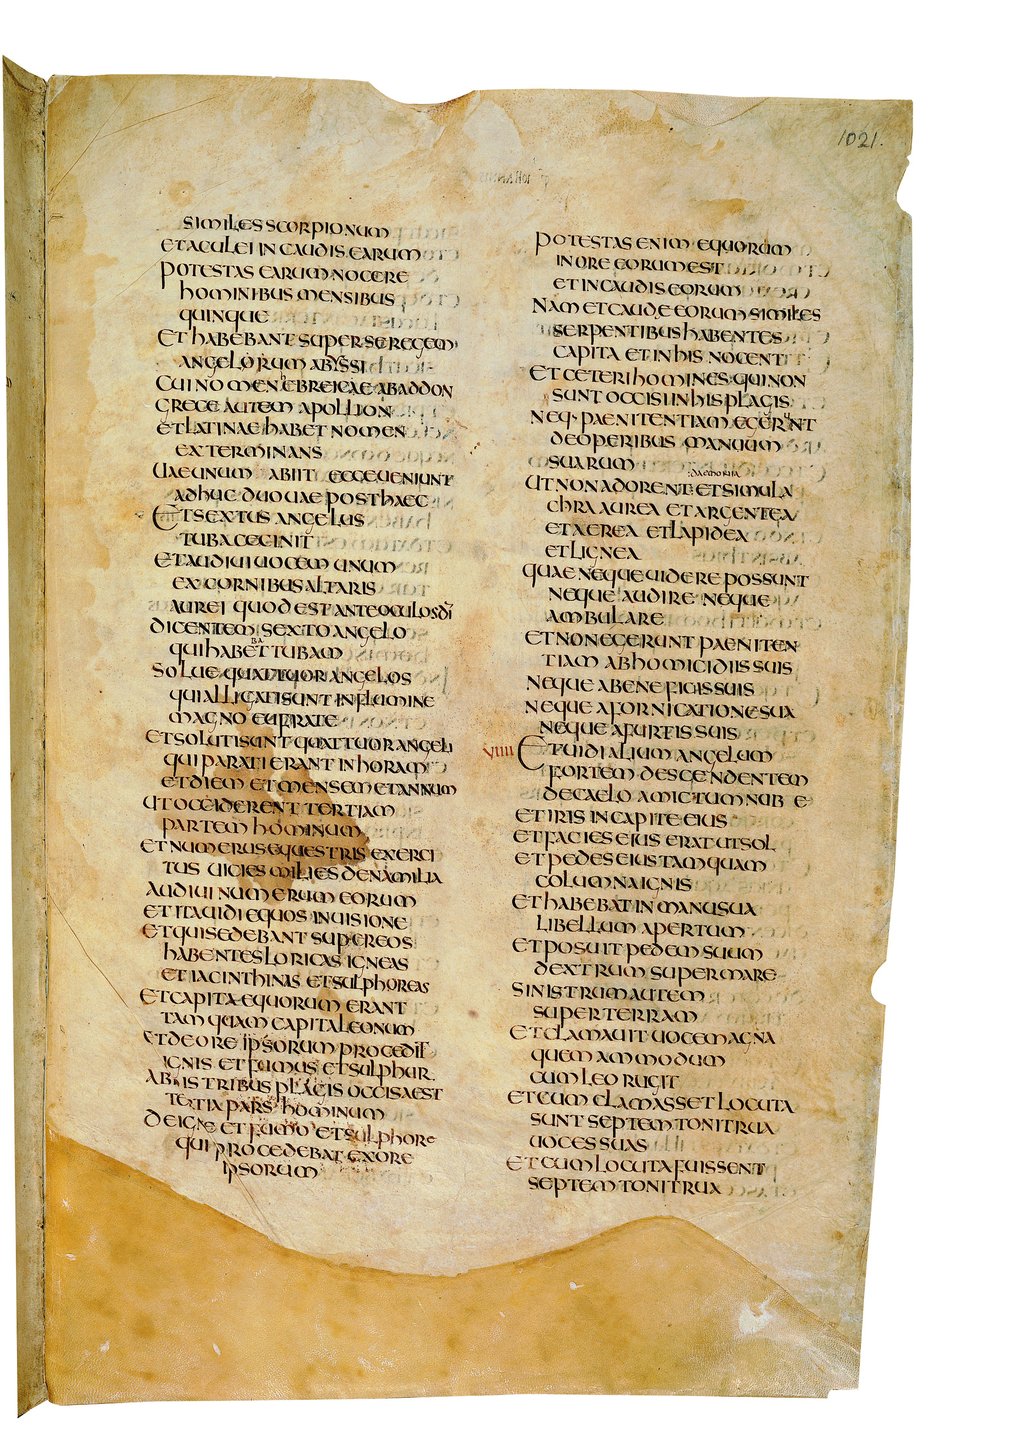 1021.
SIMILES SCORPIONUM
ET ACULEI IN CAUDIS EARUM
POTESTAS EARUM NOCERE
HOMINIBUS MENSIBUS
QUINQUE
ET HABEBANT SUPER SE REGEM
ANGELORUM ABYSSI
CUI NOMEN hEBREICAE ABADDON
GRECE AUTEM APOLLION
ET LATINAE HABET NOMEN
EXTERMINANS
UAE UNUM ABIIT ECCE UENIUNT
ADHUC DUO UAE POST HAEC
ET SEXTUS ANGELUS
TUBA CECINIT
ET AUDIUI UOCEM UNUM
EX CORNIBUS ALTARIS
AUREI QUOD EST ANTE OCULOS DI
DICENTEM SEXTO ANGELO
QUI HABEBAT TUBAM
SOLUE QUATTUOR ANGELOS
QUI ALLIGATI SUNT IN FLUMINE
MAGNO EUFRATE
ET SOLUTI SUNT QUATTUOR ANGELI
QUI PARATI ERANT IN HORAM
ET DIEM ET MENSEM ET ANNUM
UT OCCIDERENT TERTIAM
PARTEM HOMINUM
ET NUMERUS EQUESTRIS EXERCI
TUS UICIES MILIES DENA MILIA
AUDIUI NUMERUM EORUM
ET ITA UIDI EQUOS IN UISIONE
ET QUI SEDEBANT SUPER EOS
HABENTES LORICAS IGNEAS
ET IACINTHINAS ET SULPHOREAS
ET CAPITA EQUORUM ERANT
TAMQUAM CAPITA LEONUM
ET DE ORE IPSORUM PROCEDIT
IGNIS ET FUMUS ET SULPHUR
AB IIS TRIBUS PLAGIS OCCISA EST
TERTIA PARS HOMINUM
DE IGNE ET FUMO ET SULPHORE
QUI PROCEDEBAT EX ORE
IPSORUM
POTESTAS ENIM EQUORUM
IN ORE EORUM EST
ET IN CAUDIS EORUM
NAM ET CAUDE EORUM SIMILES
SERPENTIBUS HABENTES
CAPITA ET IN HIS NOCENT
ET CETERI HOMINES QUI NON
SUNT OCCISI IN HIS PLAGIS
NEQ· PAENITENTIAM EGERUNT
DE OPERIBUS MANUUM
SUARUM
UT NON ADORENT DAEMONIA ET SIMULA
CHRA AUREA ET ARGENTEA
ET AEREA ET LAPIDEA
ET LIGNEA
QUAE NEQUE UIDERE POSSUNT
NEQUE AUDIRE NEQUE
AMBULARE
ET NON EGERUNT PAENITEN
TIAM AB HOMICIDIIS SUIS
NEQUE A BENEFICIIS SUIS
NEQUE A FORNICATIONE SUA
NEQUE A FURTIS SUIS
VIIII ET UIDI ALIUM ANGELUM
FORTEM DESCENDENTEM
DE CAELO AMICTUM NUBE
ET IRIS IN CAPITE EIUS
ET FACIES EIUS ERAT UT SOL
ET PEDES EIUS TAMQUAM
COLUMNA IGNIS
ET HABEBAT IN MANU SUA
LIBELLUM APERTUM
ET POSUIT PEDEM SUUM
DEXTRUM SUPER MARE
SINISTRUM AUTEM
SUPER TERRAM
ET CLAMAUIT UOCE MAGNA
QUEMAMMODUM
CUM LEO RUGIT
ET CUM CLAMASSET LOCUTA
SUNT SEPTEM TONITRUA
UOCES SUAS
ET CUM LOCUTA FUISSENT
SEPTEM TONITRUA